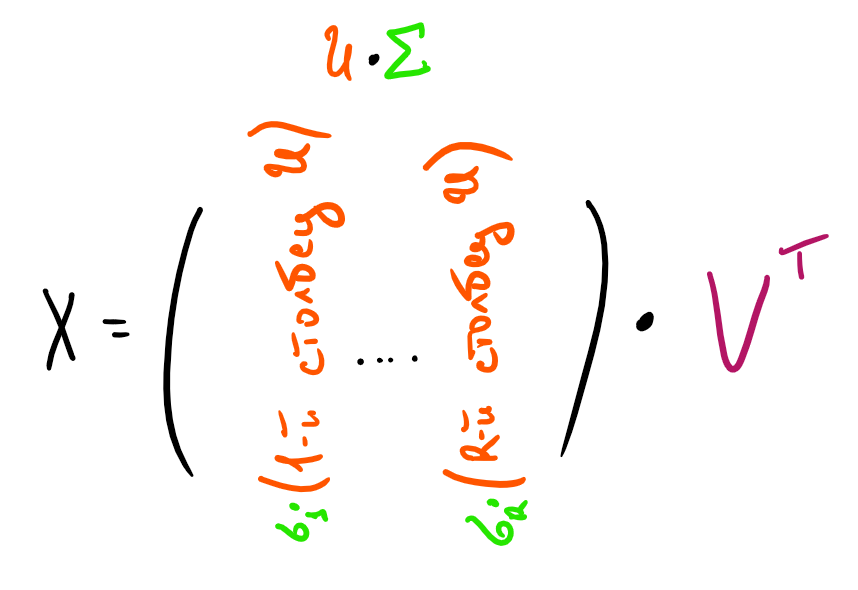 U · Σ
X = ( σ₁ · (1-й столбец U) .... σ_R · (R-й столбец U) ) · Vᵀ